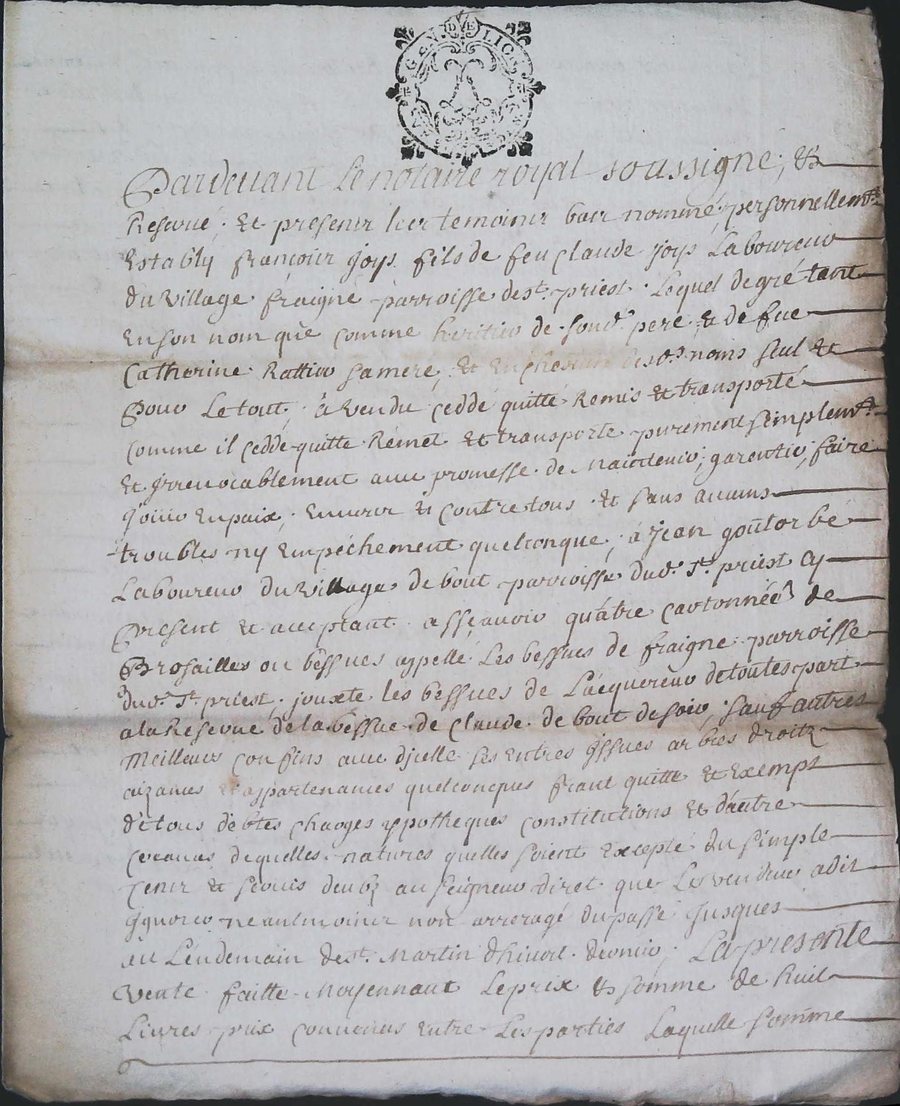 GEN. DE LIC
Pardevant le notaire royal soussigné, &
Reservé, et presens les temoins bas nommé, personnellemt.
Estably françois Joys fils de feu Claude Joys Laboureur
du village fraigne parroisse de st. priest Lequel de gré tant
En son nom que comme heritier de sond. pere & de fue
Catherine Rattier sa mere, et en chescun desds. noms seul et
Pour le tout, à vendu ceddé quitté Remis et transporté
comme il cedde quitte Rémet et transporte purement simplemt.
et jrrevocablement avec promesse de maintenir, garentir, faire
jouir en paix, envers et contre tous et sans aucuns
troubles ny Empéchement quelconque, à jean goutorbé
Laboureur du village de bout parroisse dud. St. priest cy
present et acceptant assçavoir quatre cartonnéé de
Brosailles ou béssues appellé les bessues de fraigne parroisse
dud. St. priest jouxte les bessues de Lacquereur de toutes part
a la Reserve de la bessue de Claude de bout de soir, sauf autres
meilleurs confins avec djcelle ses entrés jssues arbres droitz
aizances et appartenances quelconques frant quitte et exempt
de tous débtes charges ypotheques constitutions et dautre
de quelles natures quelles soient excepté du simple
Cens et deubz au seigneur diret que les vendeur a dit
jgnorer neantmoins non arreragé du passé jusques
au Lendemain de st. Martin dhivert dernier, La presente
vente faitte moyennant le prix & somme de huit
Livres prix convenus entre les parties Laquelle somme